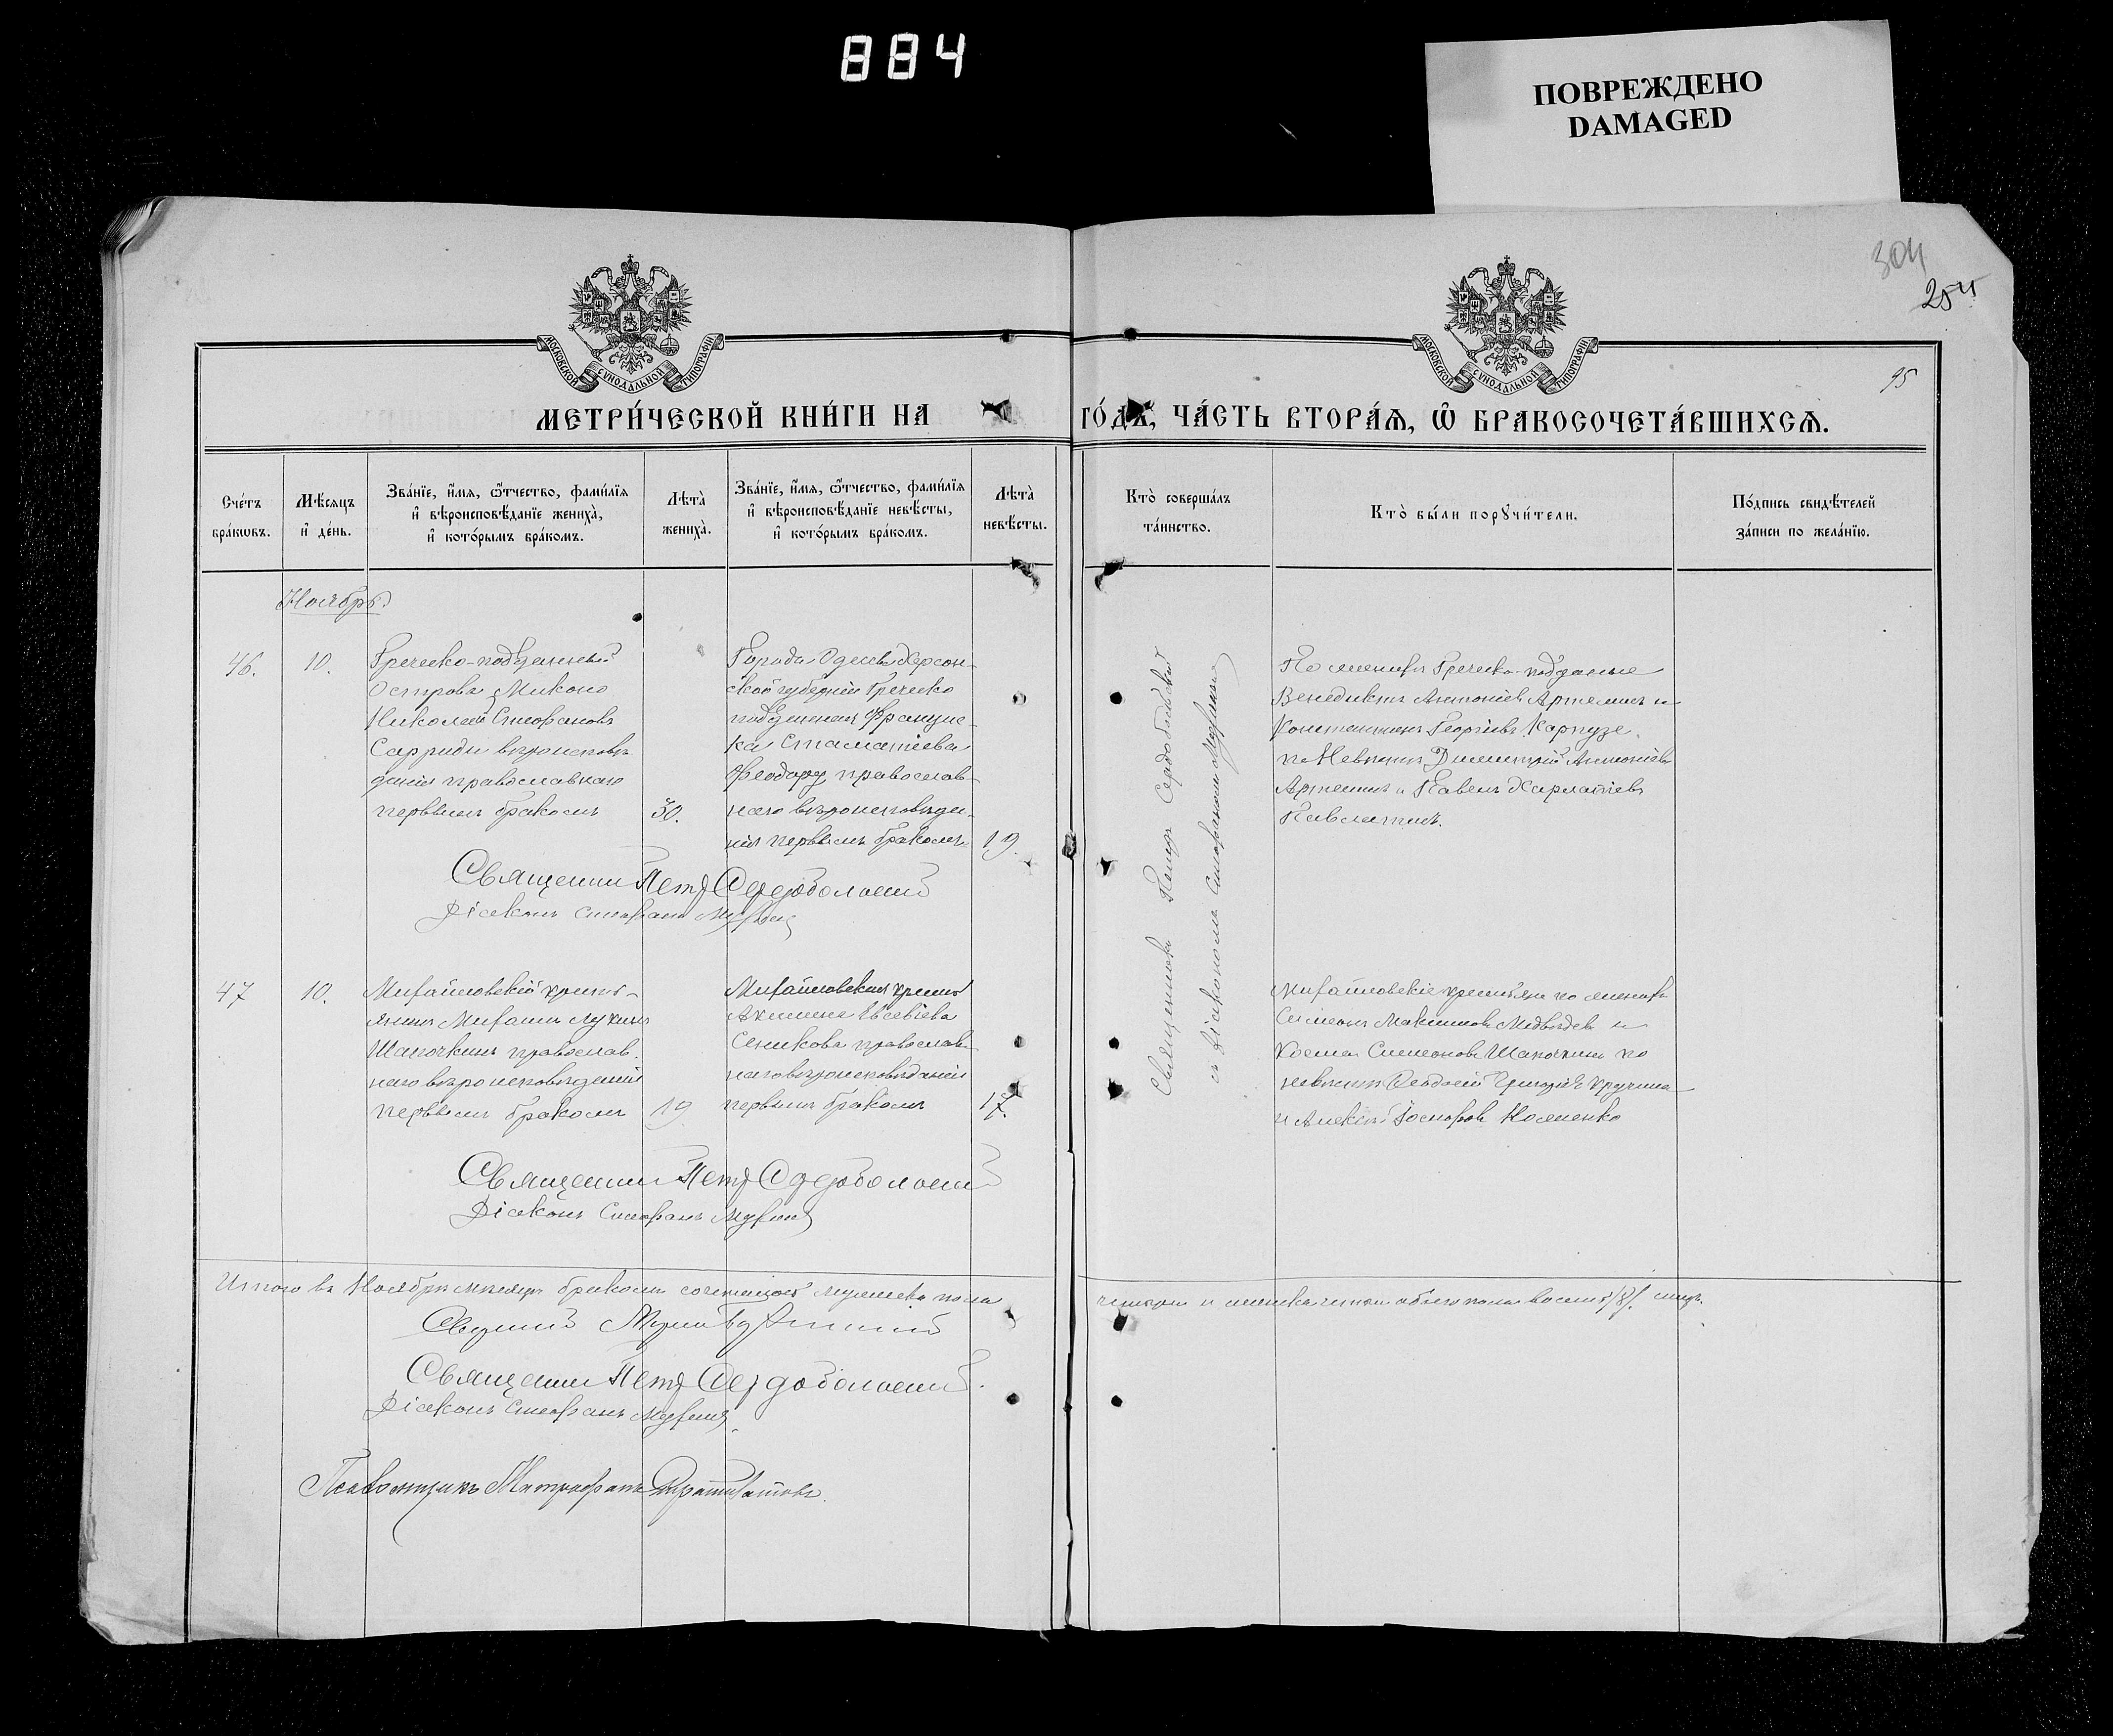 884
ПОВРЕЖДЕНО
DAMAGED
304
254
95
МОСКОВСКОЙ СѴНОДАЛЬНОЙ ТИПОГРАФІИ
МОСКОВСКОЙ СѴНОДАЛЬНОЙ ТИПОГРАФІИ
МЕТРИ́ЧЕСКОЙ КНИ́ГИ НА
ГО́ДЪ, ЧА́СТЬ ВТОРА́Я, Ѽ БРАКОСОЧЕТА́ВШИХСЯ.
Сче́тъ
бра́кѡвъ.
Мѣ́сяцъ
и҆ де́нь.
Зва́нїе, и҆́мя, ѻ҆́тчество, фами́лїя
и҆ вѣроисповѣ́данїе женихà,
и҆ кото́рымъ бра́комъ.
Лѣтà
женихà.
Зва́нїе, и҆́мя, ѻ҆́тчество, фами́лїя
и҆ вѣроисповѣ́данїе невѣ́сты,
и҆ кото́рымъ бра́комъ.
Лѣтà
невѣ́сты.
Ктò соверша́лъ
та́инство.
Ктò бы́ли порꙋчи́тели.
По́дпись свидѣ́телей
за́писи по жела́нїю.
Ноябрь
46.
10.
Греческо-подданный
Острова Миконо
Николай Стефановъ
Сарриди вѣроисповѣ
данія православнаго
первымъ бракомъ
30.
Города Одессы Херсон-
ской губерніи Греческо
подданная Францис-
ка Стаматіева
Феодору православ-
наго вѣроисповѣда-
нія первымъ бракомъ
19.
Священникъ Петръ Сердобольскій
съ діакономъ Стефаномъ Мухинымъ
По женихѣ Греческо-подданые
Венедиктъ Антоніевъ Артемисъ и
Константинъ Георгіевъ Карпузе,
по Невѣстѣ Димитрій Антоніевъ
Артемисъ и Павелъ Харлатіевъ
Священник Петр Сердобольский
Діаконъ Стефанъ Мухинъ
47
10.
Михайловскій кресть-
янинъ Михаилъ Лукинъ
Шапочкинъ православ-
наго вѣроисповѣданія
первымъ бракомъ
19
Михайловская крест.
Акилина Евсевіева
Сенкова православ-
наго вѣроисповѣданія
первымъ бракомъ
17.
Михайловскіе крестьяне по женихѣ
Симеонъ Максимовъ Медвѣдевъ и
Косма Симеоновъ Шапочкинъ по
невѣстѣ Феодосій Григорьевъ Кручина
и Алексѣй Носменко
Священник Петр Сердобольский
Діаконъ Стефанъ Мухинъ
Итого въ Ноябрѣ мѣсяцѣ бракомъ сочетались мужеска пола
четыре и женска четыре обоего пола восемь /8/. лицъ.
Священник Петр Сердобольский.
Діаконъ Стефанъ Мухинъ.
Псаломщикъ Митрофанъ